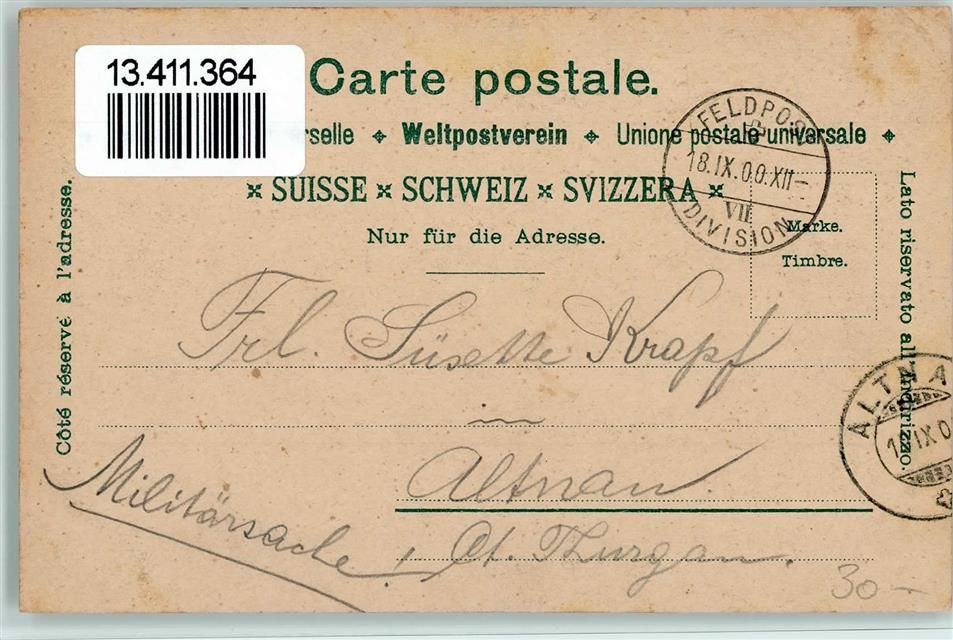 13.411.364
Carte postale.
rselle ⌖ Weltpostverein ⌖ Unione postale universale ⌖
× SUISSE × SCHWEIZ × SVIZZERA ×
Nur für die Adresse.
FELDPOST
18.IX.00.XII–
VII
DIVISION
Marke.
Timbre.
Côté réservé à l'adresse.
Lato riservato all'indirizzo.
Frl. Süsette Krapf
in
Altnau.
Ct. Thurgau.
Militärsache!
ALTNA
IX 0
30.–